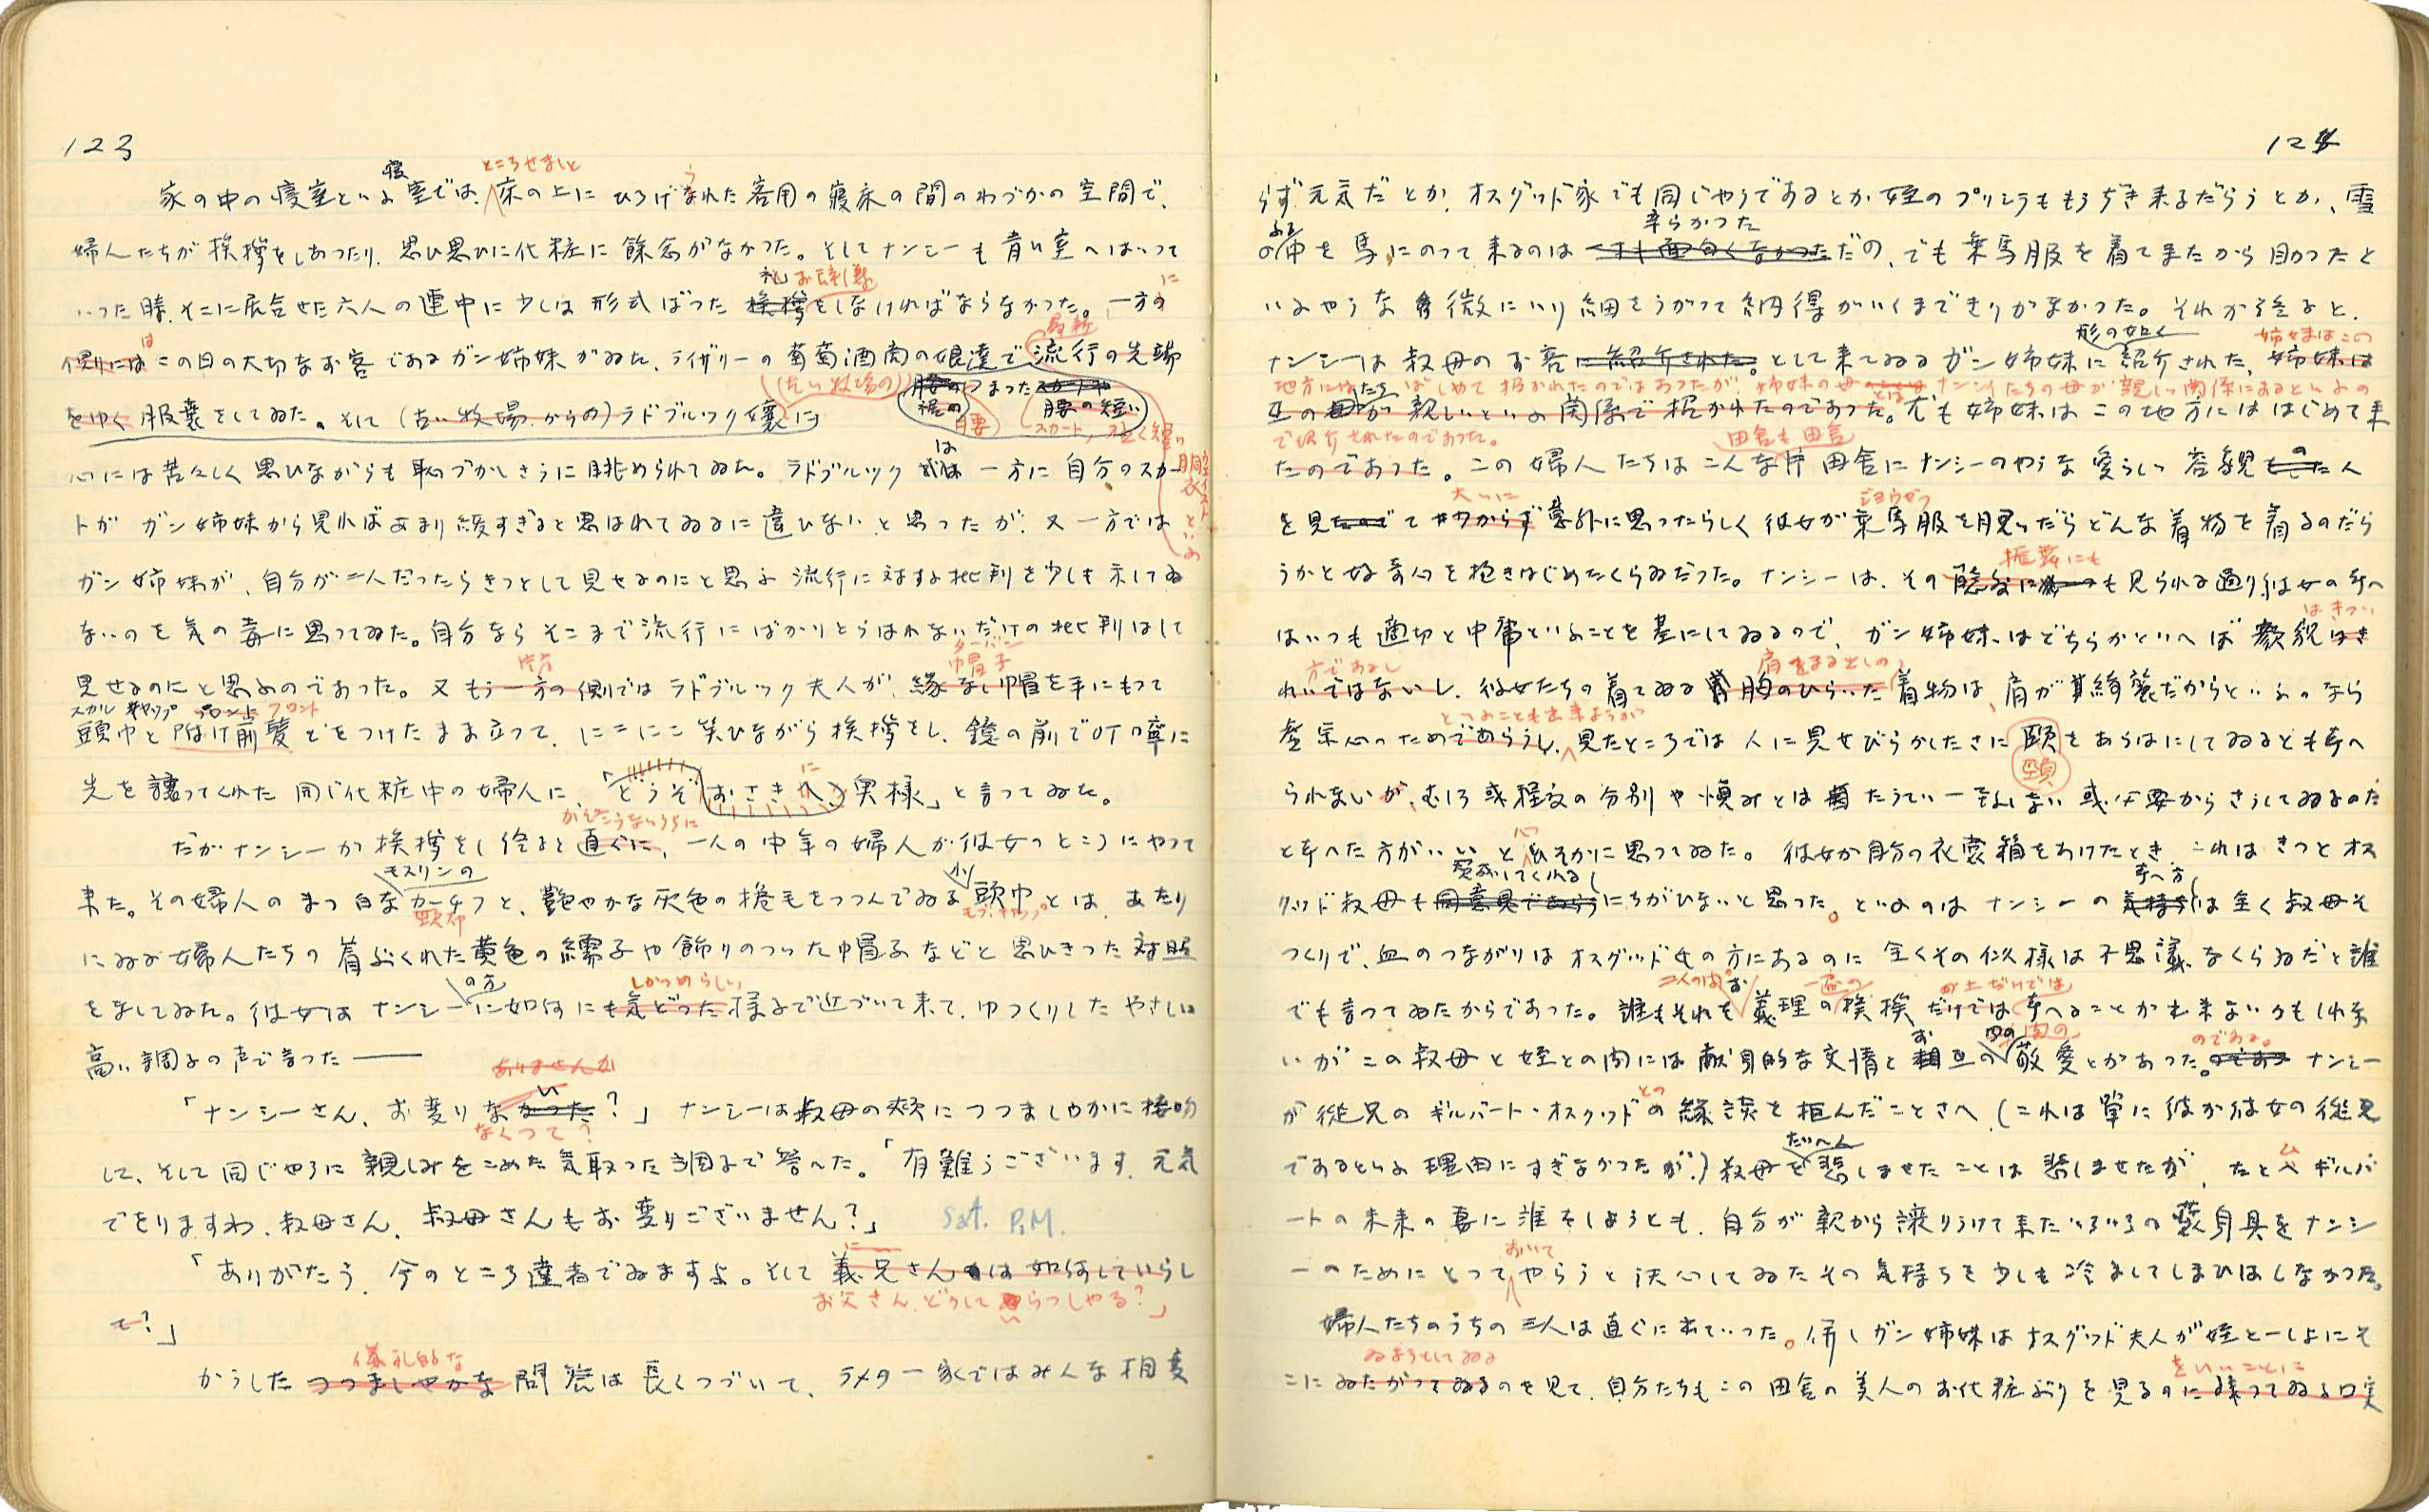 123
ところせましと
家の中の寝室といふ室では、床の上にひろげられた客用の寝床の間のわづかの空間で、
婦人たちが挨拶をしあつたり、思ひ思ひに化粧に餘念がなかつた。そしてナンシーも青い室へはいつて
礼 お辞儀
いつた時、そこに居合せた六人の連中に少しは形式ばつた挨拶をしなければならなかつた。一方の
に
側には この日の大切なお客であるガン姉妹がゐた、ライザリーの葡萄酒商の娘達で流行の先端
は
最新
をゆく服装をしてゐた。そして(古い牧場からの)ラドブルック嬢に
(古い牧場の)
つまつた
腰の短い
スカート
心には苦々しく思ひながらも恥づかしさうに眺められてゐた。ラドブルック嬢は一方に自分のスカー
トがガン姉妹から見ればあまり緩すぎると思はれてゐるに違ひないと思つたが、又一方では
胴衣
ウエイスト
ガン姉妹が、自分が二人だつたらきつとして見せるのにと思ふ流行に対する批判を少しも示してゐ
ないのを気の毒に思つてゐた。自分ならそこまで流行にばかりとらはれないだけの批判はして
片方
ターバン
帽子
見せるのにと思ふのであつた。又もう一方の側ではラドブルック夫人が、縁なし帽を手にもつて
スカル キャップ フロント
頭巾と附け前髪とをつけたまま立つて、にこにこ笑ひながら挨拶をし、鏡の前で叮嚀に
先を譲つてくれた同じ化粧中の婦人に、「どうぞおさきへ、奥様」と言つてゐた。
に
だがナンシーが挨拶をし終ると直ぐに、一人の中年の婦人が彼女のところにやつて
モスリンの
来た。その婦人のまつ白なカーチフと、艶やかな灰色の捲毛をつつんでゐる頭巾とは、あたり
モブ・キャップ
にゐる婦人たちの着ぶくれた黄色の繻子や飾りのついた帽子などと思ひきつた対照
の方
しかつめらしい
をなしてゐた。彼女はナンシーに如何にも気どつた様子で近づいて来て、ゆつくりしたやさしい
高い調子の声で言つた――
ありませんか
「ナンシーさん、お変りなかつた?」ナンシーは叔母の頬につつましやかに接吻
なくつて?
して、そして同じやうに親しみをこめた気取つた調子で答へた。「有難うございます、元気
でをりますわ、叔母さん、叔母さんもお変りございません?」 Sat. P.M.
「ありがたう、今のところ達者でゐますよ。そして義兄さんは如何していらし
お父さん、どうしていらつしやる?」
て?」
儀礼的な
かうしたつつましやかな問答は長くつづいて、ラメター家ではみんな相変
124
らず元気だとか、オスグッド家でも同じやうであるとか、姪のプリシラももうぢき来るだらうとか、雪
辛らかつた
の中を馬にのつて来るのはだの、でも乗馬服を着てまたから助つたと
いふやうな微にいり細をうがつて納得がいくまできりがなかつた。それが終ると、
形の如く
姉妹はこの
ナンシーは叔母のお客に紹介された。として来てゐるガン姉妹に紹介された、姉妹は
互の母が親しいといふ関係で招かれたのであつた。尤も姉妹はこの地方にははじめて来
で紹介されたのであつた。
田舎も田舎
たのであつた。この婦人たちはこんな片田舎にナンシーのやうな愛らしい容貌の人
大いに
を見て少からず意外に思つたらしく彼女が乗馬服を脱いだらどんな着物を着るのだら
ジョウゼフ
うかと好奇心を抱きはじめたくらゐだつた。ナンシーは、そのにも見られる通り彼女の考へ
振舞にも
はいつも適切と中庸といふことを基にしてゐるので、ガン姉妹はどちらかといへば顔貌はき
はきつい
方であるし
肩をまる出しの
れいではないし、彼女たちの着てゐる胸のひらいた着物は、肩が綺麗だからといふのなら
といふことも出来ようが
虚栄心のためであらうし、見たところでは人に見せびらかしたさに頸をあらはにしてゐるとも考へ
られないが、むしろ或程度の分別や慎みとは
と考へた方がいい、と心ひそかに思つてゐた。彼女が自分の衣裳箱をあけたとき、これはきつとオス
賛成してくれるし
考へ方
グッド叔母も同意見であらうにちがひないと思つた。といふのはナンシーの気持ちは全く叔母そ
つくりで、血のつながりはオスグッド氏の方にあるのに全くその似様は不思議なくらゐだと誰
でも言つてゐたからであつた。誰もそれを義理の挨拶だけでは考へることが出来ないかもしれな
いがこの叔母と姪との間には献身的な交情とお互の敬愛とがあつた。ナンシー
のである。
が従兄のギルバート・オスグッドとの縁談を拒んだことさへ(これは単に彼が彼女の従兄
たいへん
であるといふ理由にすぎなかつたが、)叔母を悲しませたことは悲しませたが、たとへギルバ
ートの未来の妻に誰をしようとも、自分が親から譲りうけて来たいろいろの装身具をナンシ
おいて
ーのためにとつてやらうと決心してゐたその気持ちを少しも冷ましてしまひはしなかつた。
婦人たちのうちの三人は直ぐに出ていつた。併しガン姉妹はオスグッド夫人が姪と一しよにそ
ゐようとしてゐる
をいいことに
こにゐたがつてゐるのを見て、自分たちもこの田舎の美人のお化粧ぶりを見るのに残つてゐる口実